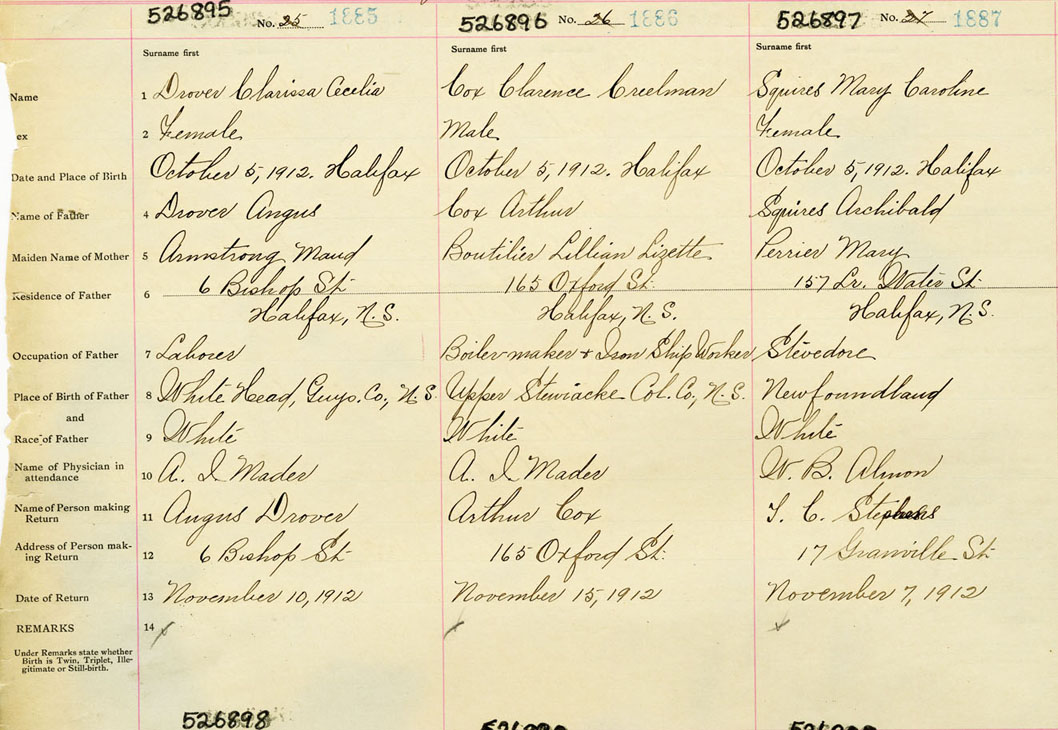 526895 No. 25 1885 526896 No. 26 1886 526897 No. 27 1887
Surname first Surname first Surname first
Name 1 Drover Clarissa Cecelia Cox Clarence Creelman Squires Mary Caroline
ex 2 Female Male Female
Date and Place of Birth October 5, 1912. Halifax October 5, 1912. Halifax October 5, 1912. Halifax
Name of Father 4 Drover Angus Cox Arthur Squires Archibald
Maiden Name of Mother 5 Armstrong Maud Boutilier Lillian Lizette Perrier Mary
Residence of Father 6 6 Bishop St. 165 Oxford St. 157 Lr. Water St.
Halifax, N.S. Halifax, N.S. Halifax, N.S.
Occupation of Father 7 Laborer Boiler-maker + Iron Ship Worker Stevedore
Place of Birth of Father 8 White Head, Guys. Co., N.S. Upper Stewiacke Col. Co., N.S. Newfoundland
and
Race of Father 9 White White White
Name of Physician in attendance 10 A. I. Mader A. I. Mader W. B. Almon
Name of Person making Return 11 Angus Drover Arthur Cox C. Stephens
Address of Person making Return 12 6 Bishop St. 165 Oxford St. 17 Granville St.
Date of Return 13 November 10, 1912 November 15, 1912 November 7, 1912
REMARKS 14
Under Remarks state whether
Birth is Twin, Triplet, Ille-
gitimate or Still-birth.
526898